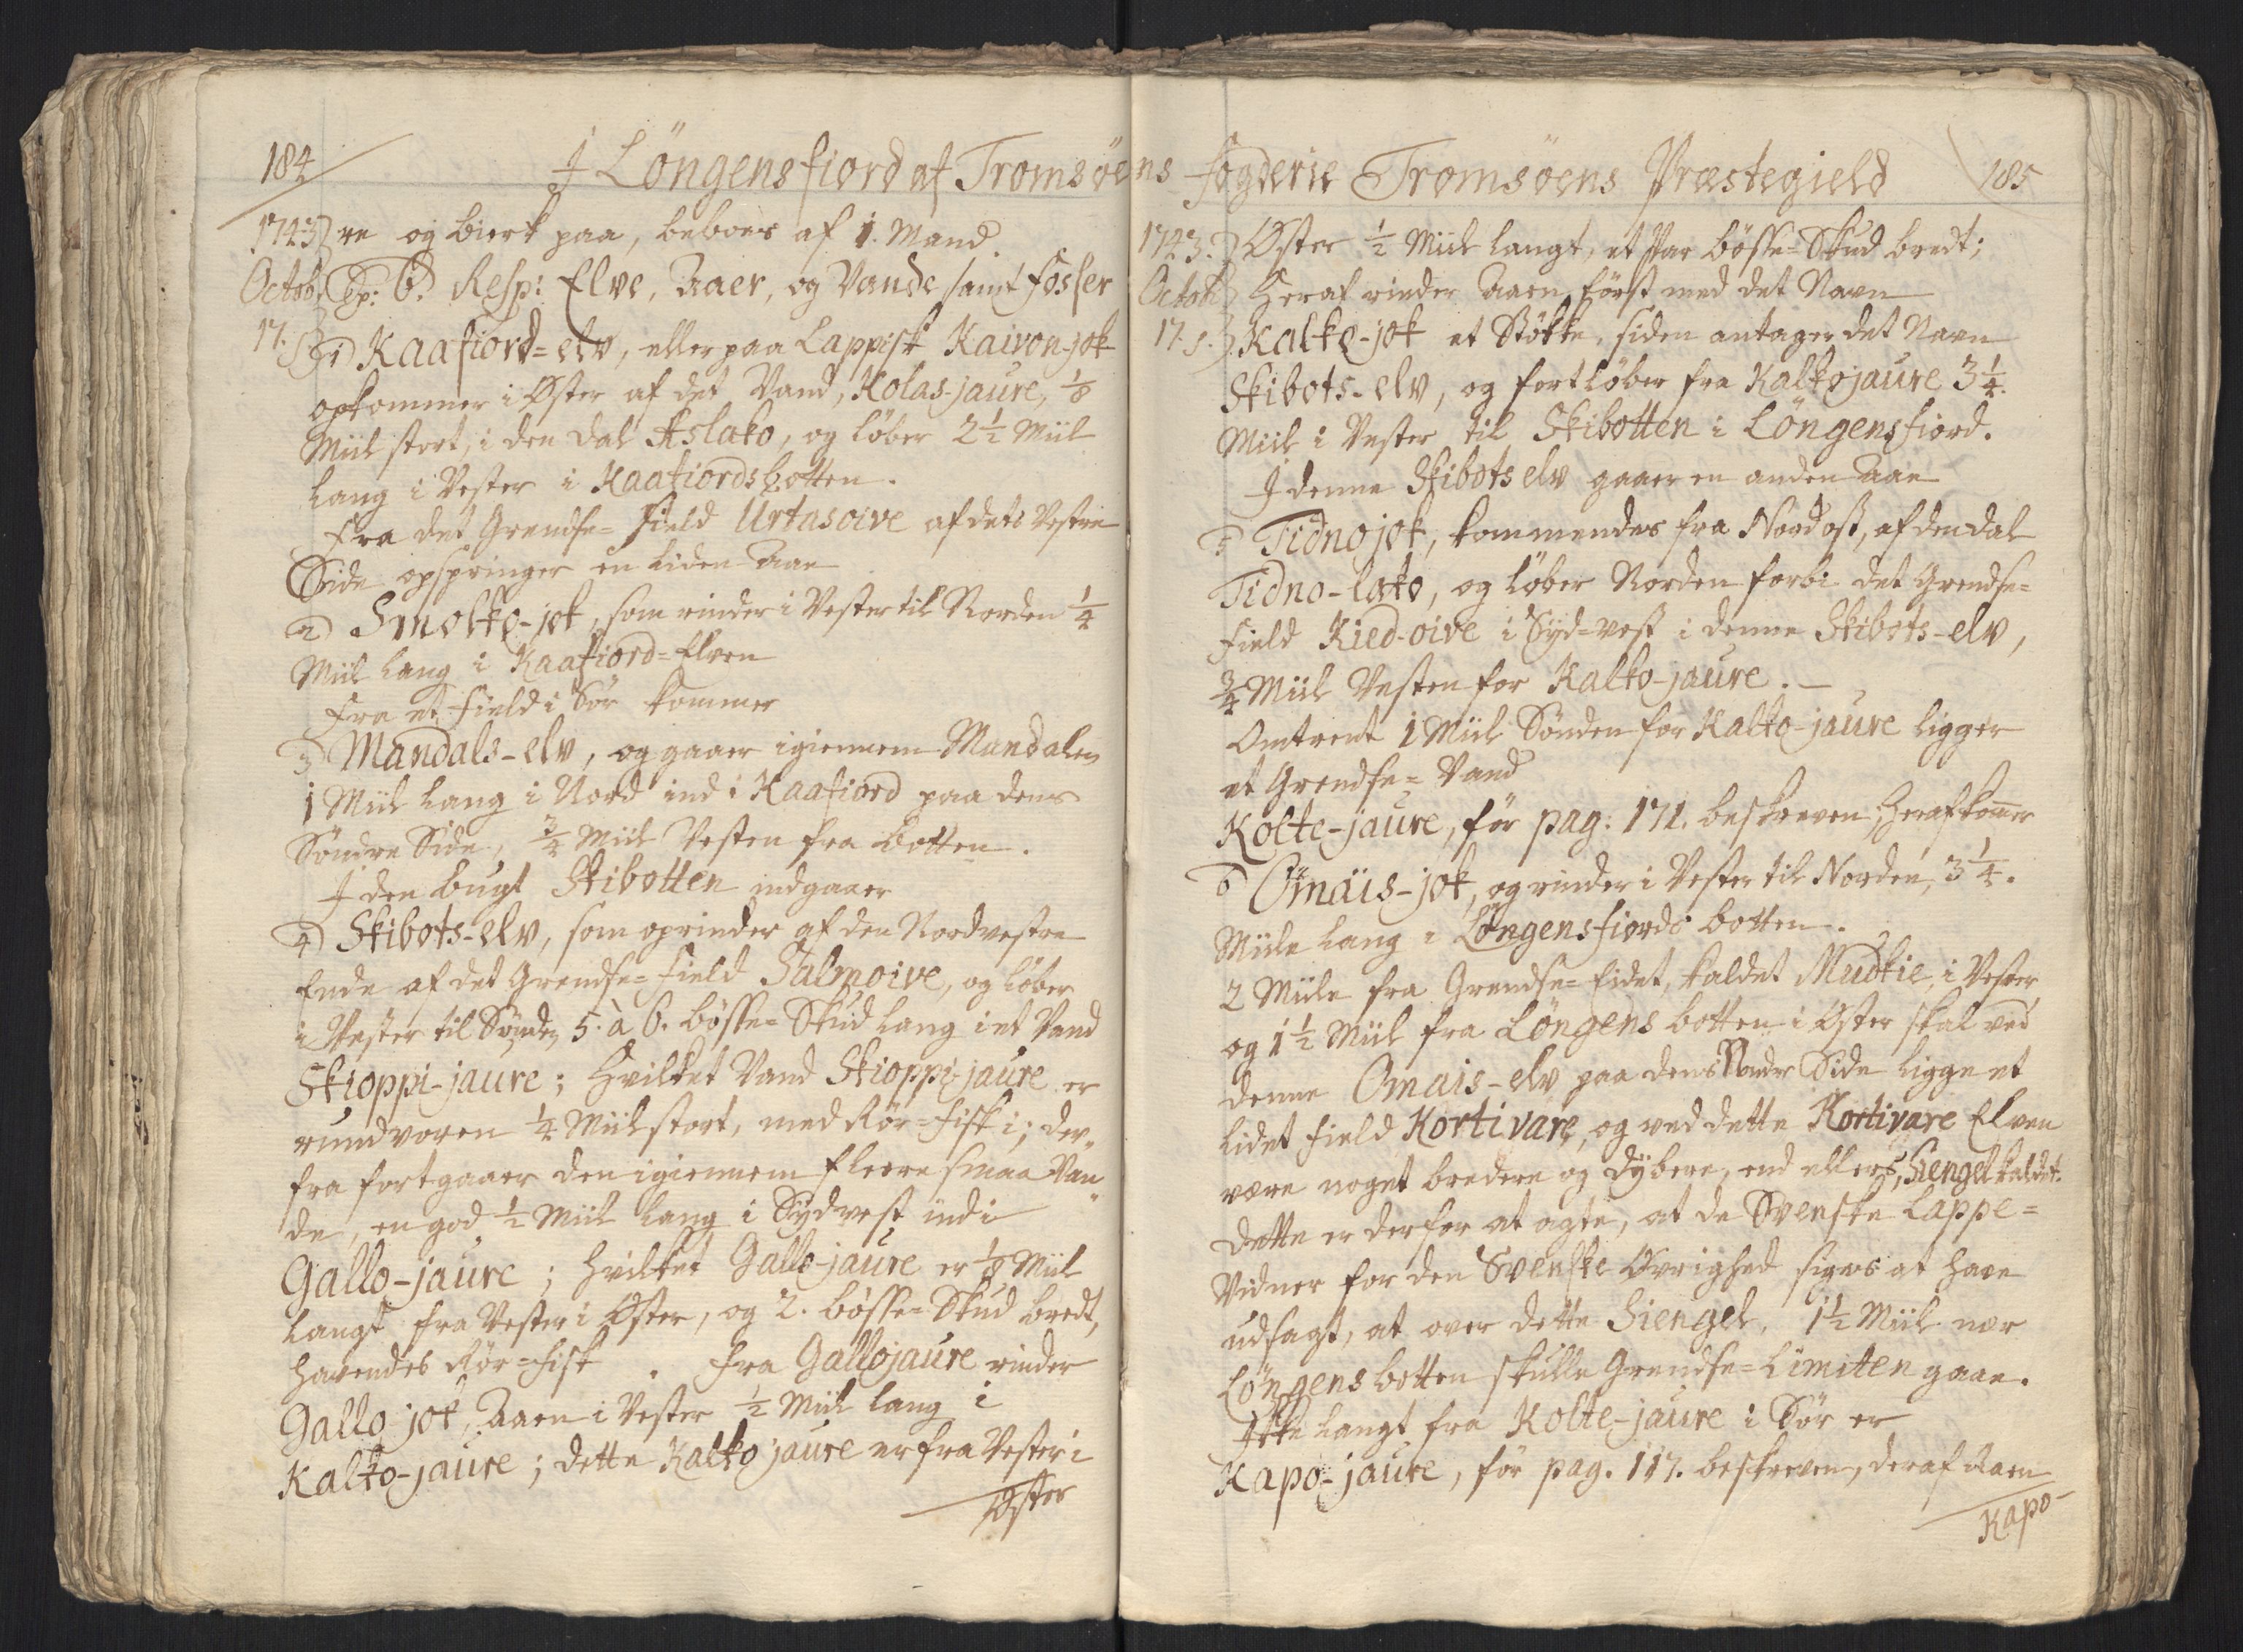 184
I Löngensfiord af Tromsöens Fogderie Tromsöens Præstegield
185
1743 re og birk paa, beboes af 1. Mand.
Octobr Sp: 6. Resp: Elve, Aaer, og Vande samt Fosser
17. 1) Kaafiord=elv, eller paa Lappisk Kaivon-jok
opkommer i Öster af det Vand, Kolas-jaure, 1/8
Miil stort, i den dal Aslako, og löber 2 1/2 Miil
lang i Vester i Kaafiordsbotten.
Fra det Grendse=Field Urtasoive af dets Vestre
Side opspringer en liden Aae
2) Smolko-jok, som rinder i Vester til Norden 1/4
Miil lang i Kaafiord=Elven
Fra et Field i Sör kommer
3) Mandals-elv, og gaaer igiennem Mandalen
1 Miil lang i Nord ind i Kaafiord paa dens
Söndre Side, 3/4 Miil Vesten fra botten.
I den bugt Skibotten indgaaer
4) Skibots-elv, som oprinder af den Nordvestre
Ende af det Grendse=Field Salmoive, og löber
i Vester til Sönden 5. à 6. bösse=Skud lang i et Vand
Skioppi-jaure; Hvilket Vand Skioppi-jaure er
rundvoren 1/4 Miil stort, med Rör=Fisk i; der„
fra fortgaaer den igiennem fleere smaa Van„
de, en god 1/2 Miil lang i Sydvest ind i
Gallo-jaure; Hvilket Gallo-jaure er 1/8 Miil
langt fra Vester i Öster, og 2. bösse=Skud bredt,
havendes Rör=Fisk. Fra Gallojaure rinder
Gallo jok, Aaen i Vester 1/2 Miil lang i
Kalko-jaure; dette Kalko jaure er fra Vester i
Öster
1743. Öster 1/2 Miil langt, et Par bösse=Skud bredt;
Octob: Heraf rinder Aaen först med det Navn
17. s. Kalko-jok et Stökke, siden antager det Navn
Skibots-elv, og fortlöber fra Kalkojaure 3 1/4.
Miil i Vester til Skibotten i Löngensfiord.
I denne Skibots elv gaaer en anden Aae
5 Tidnojok, kommendes fra Nordost, af den dal
Tidno-lako, og löber Norden forbi det Grendse=
Field Kied-oive i Syd=vest i denne Skibots-elv,
3/4 Miil Vesten for Kalko-jaure.
Omtrent 1 Miil Sönden for Kalko-jaure ligger
et Grendse=Vand
Kolte-jaure, för pag: 171. beskreven, heraf kom̅er
6 Omais-jok, og rinder i Vester til Norden, 3 1/4.
Miile lang i Löngensfiords botten.
2 Miile fra Grendse=Eidet, kaldet Mudkie, i Vester
og 1 1/2 Miil fra Löngens botten i Öster skal ved
denne Omais-elv paa dens Side ligge et
lidet Field Kortivare, og ved dette Kortivare Elven
være noget bredere og dybere, end ellers, Siengel kaldet.
dette er derfor at agte, at de Svenske Lappe=
Vidner for den Svenske Övrighed siges at have
udsagt, at over dette Siengel, 1 1/2 Miil nær
Löngens botten skulle Grendse=Limiten gaae.
Ikke langt fra Kolte-jaure i Sör er
Kapo-jaure, för pag. 117. beskreven, deraf Aaen
Kapo-